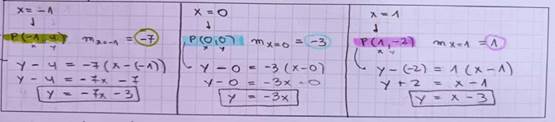 x = -1
↓
P(-1, 4) m x=-1 = -7
x y
y - 4 = -7(x - (-1))
y - 4 = -7x - 7
y = -7x - 3
x = 0
↓
P(0,0) m x=0 = -3
x y
y - 0 = -3(x-0)
y - 0 = -3x - 0
y = -3x
x = 1
↓
P(1,-2) m x=1 = 1
x y
y - (-2) = 1(x-1)
y + 2 = x - 1
y = x - 3